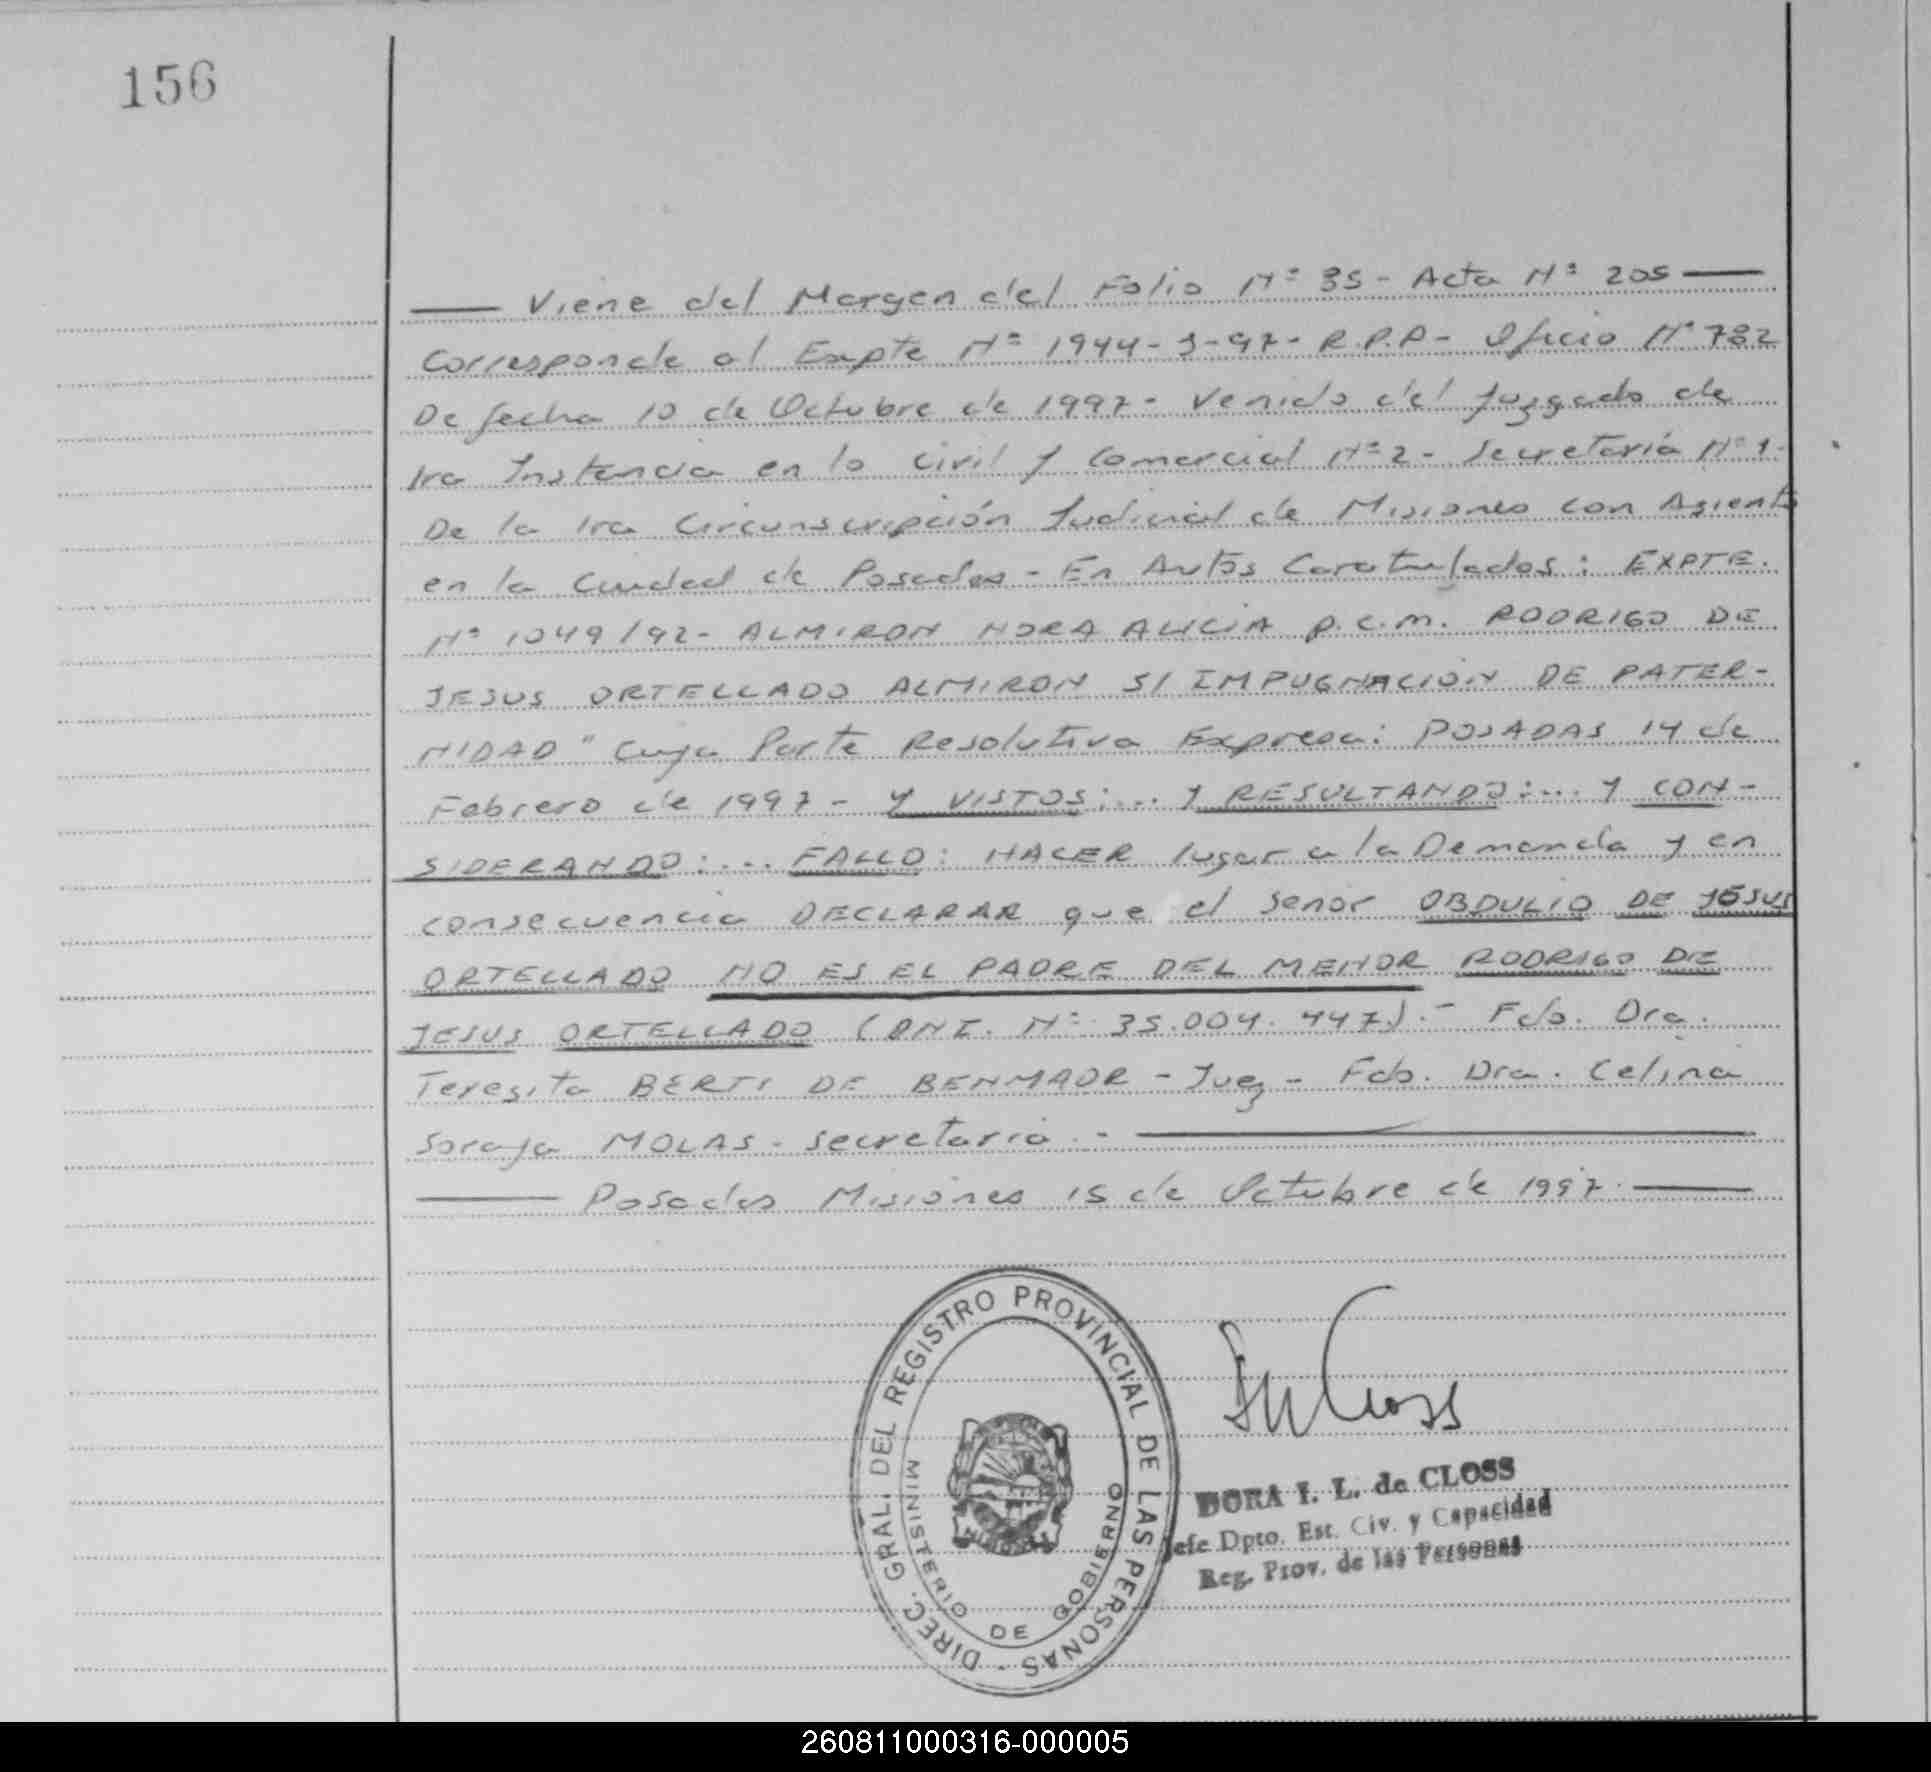 156
Viene del Margen del Folio Nº 35 - Acta Nº 205
Corresponde al Expte Nº 1944-J-97- R.P.P- Oficio Nº 782
De fecha 10 de Octubre de 1997- Venido del Juzgado de
1ra Instancia en lo Civil y Comercial Nº 2 - Secretaría Nº 1-
De la 1ra Circunscripción Judicial de Misiones con Asiento
en la Ciudad de Posadas - En Autos Caratulados: EXPTE.
Nº 1049/92- ALMIRON NORA ALICIA p.c.m. RODRIGO DE
JESUS ORTELLADO ALMIRON S/ IMPUGNACIÓN DE PATER-
NIDAD" Cuya Parte Resolutiva Expresa: POSADAS 14 de
Febrero de 1997 - Y VISTOS:... Y RESULTANDO:... Y CON-
SIDERANDO:... FALLO: HACER lugar a la Demanda y en
consecuencia DECLARAR que el señor OBDULIO DE JESUS
ORTELLADO NO ES EL PADRE DEL MENOR RODRIGO DE
JESUS ORTELLADO (DNI. Nº 35.004.447).- Fdo. Dra.
Teresita BERTI DE BENMAOR - Juez - Fdo. Dra. Celina
Soraya MOLAS - Secretaria.-
Posadas Misiones 15 de Octubre de 1997.
DIREC. GRAL. DEL REGISTRO PROVINCIAL DE LAS PERSONAS -
MINISTERIO DE GOBIERNO
MISIONES
DORA I. L. de CLOSS
Jefe Dpto. Est. Civ. y Capacidad
Reg. Prov. de las Personas
260811000316-000005